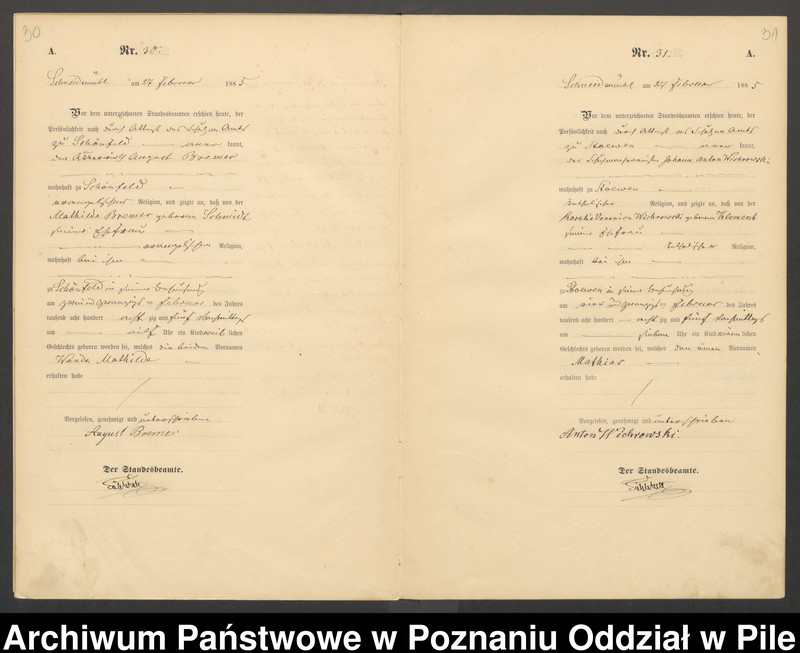 30
A.
Nr. 30.
Schneidemühl am 27 Februar 1885
Vor dem unterzeichneten Standesbeamten erschien heute, der
Persönlichkeit nach durch Attest des Schulzen Amts
zu Schönfeld kannt,
der August Bremer
wohnhaft zu Schönfeld
evangelischer Religion, und zeigte an, daß von der
Mathilde Bremer geborene Schmidt
seiner Ehefrau
evangelischer Religion,
wohnhaft bei ihm
zu Schönfeld in seiner Behausung
am zwei und zwanzigsten Februar des Jahres
tausend acht hundert achtzig und fünf Nachmittags
um Uhr ein Kind weiblichen
Geschlechts geboren worden sei, welches die beiden Vornamen
Wanda Mathilde
erhalten habe
Vorgelesen, genehmigt und unterschrieben
August Bremer
Der Standesbeamte.
31
Nr. 31.
A.
Schneidemühl am 27 Februar 1885
Vor dem unterzeichneten Standesbeamten erschien heute, der
Persönlichkeit nach durch Attest des Schulzen Amts
zu Stoewen kannt,
der Johann Anton Wichrowski
wohnhaft zu Stoewen
katholischer Religion, und zeigte an, daß von der
Rosalie Veronica Wichrowski geborene Klement
seiner Ehefrau
katholischer Religion,
wohnhaft bei ihm
zu Stoewen in seiner Behausung
am vier und zwanzigsten Februar des Jahres
tausend acht hundert achtzig und fünf Nachmittags
um sieben Uhr ein Kind männlichen
Geschlechts geboren worden sei, welches den einen Vornamen
Mathias
erhalten habe
Vorgelesen, genehmigt und unterschrieben
Anton Wichrowski.
Der Standesbeamte.
Archiwum Państwowe w Poznaniu Oddział w Pile